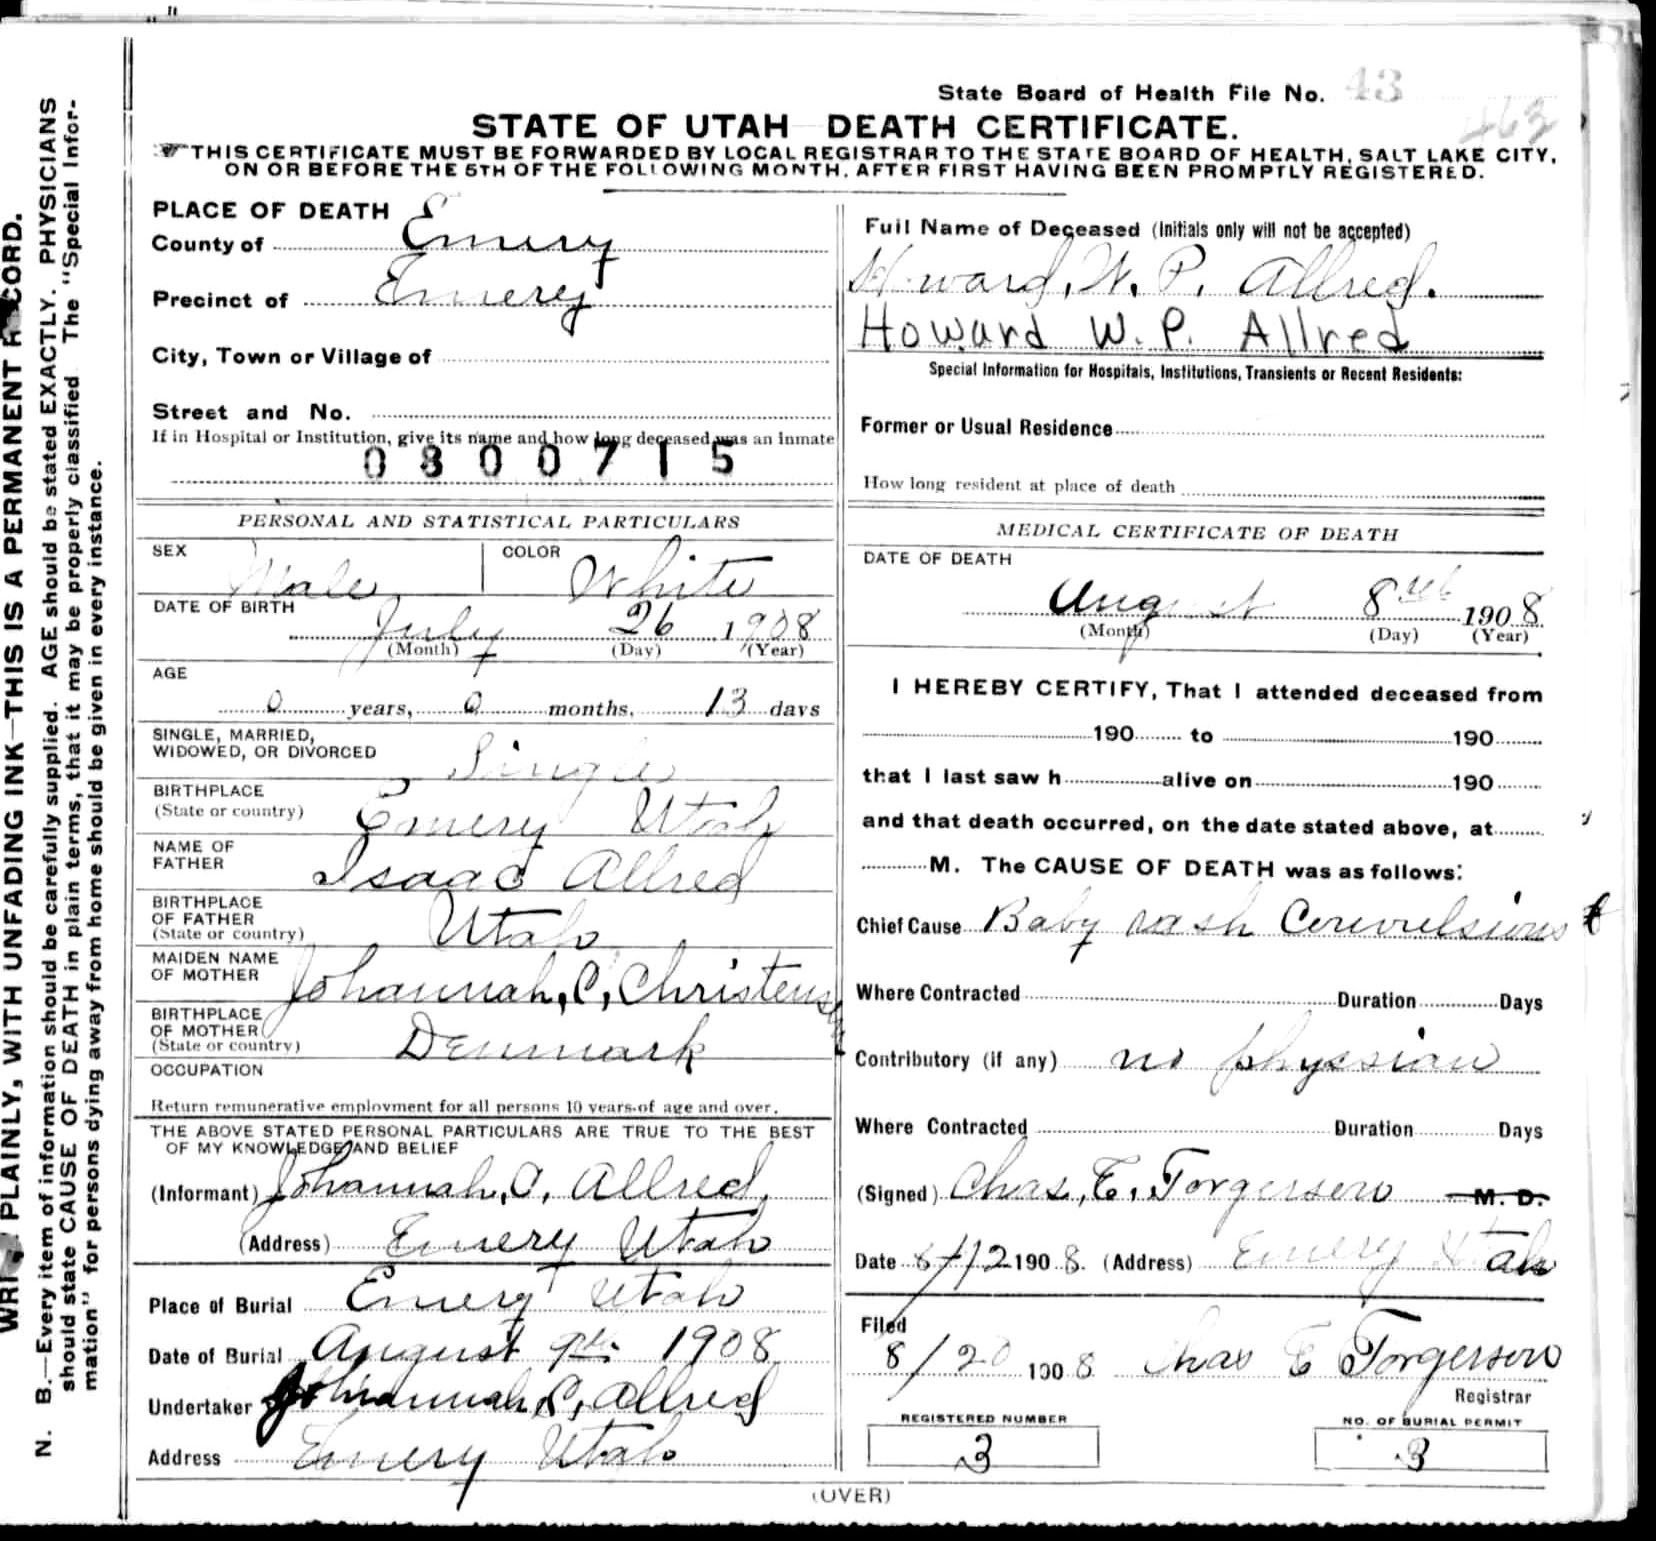 State Board of Health File No. 43
463
STATE OF UTAH DEATH CERTIFICATE.
THIS CERTIFICATE MUST BE FORWARDED BY LOCAL REGISTRAR TO THE STATE BOARD OF HEALTH, SALT LAKE CITY,
ON OR BEFORE THE 5TH OF THE FOLLOWING MONTH, AFTER FIRST HAVING BEEN PROMPTLY REGISTERED.
PLACE OF DEATH
County of Emery
Precinct of Emery
City, Town or Village of
Street and No.
If in Hospital or Institution, give its name and how long deceased was an inmate
0300715
PERSONAL AND STATISTICAL PARTICULARS
SEX Male COLOR White
DATE OF BIRTH
July 26 1908
(Month) (Day) (Year)
AGE
0 years, 0 months, 13 days
SINGLE, MARRIED,
WIDOWED, OR DIVORCED Single
BIRTHPLACE
(State or country) Emery Utah
NAME OF
FATHER Isaac Allred
BIRTHPLACE
OF FATHER
(State or country) Utah
MAIDEN NAME
OF MOTHER Johannah, C, Christensen
BIRTHPLACE
OF MOTHER
(State or country) Denmark
OCCUPATION
Return remunerative employment for all persons 10 years of age and over.
THE ABOVE STATED PERSONAL PARTICULARS ARE TRUE TO THE BEST
OF MY KNOWLEDGE AND BELIEF
(Informant) Johannah, C, Allred,
(Address) Emery Utah
Place of Burial Emery Utah
Date of Burial August 9th 1908
Undertaker Johannah, C, Allred
Address Emery Utah
Full Name of Deceased (Initials only will not be accepted)
Howard, W. P. Allred.
Howard W. P. Allred
Special Information for Hospitals, Institutions, Transients or Recent Residents:
Former or Usual Residence
How long resident at place of death
MEDICAL CERTIFICATE OF DEATH
DATE OF DEATH
August 8th 1908
(Month) (Day) (Year)
I HEREBY CERTIFY, That I attended deceased from
190 to 190
that I last saw h alive on 190
and that death occurred, on the date stated above, at
M. The CAUSE OF DEATH was as follows:
Chief Cause Baby rash Convulsions
Where Contracted Duration Days
Contributory (if any) no physsian
Where Contracted Duration Days
(Signed) Chas, E. Torgerson M. D.
Date 8/12 1908. (Address) Emery Utah
Filed
8/20 1908 Chas E Torgerson
Registrar
REGISTERED NUMBER
3
NO. OF BURIAL PERMIT
3
(OVER)
PLAINLY, WITH UNFADING INK—THIS IS A PERMANENT RECORD.
N. B.—Every item of information should be carefully supplied. AGE should be stated EXACTLY. PHYSICIANS
should state CAUSE OF DEATH in plain terms, that it may be properly classified The "Special Infor-
mation" for persons dying away from home should be given in every instance.